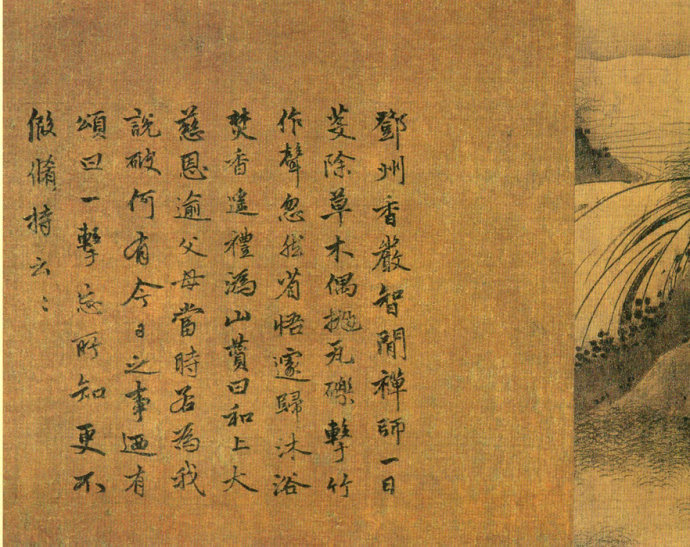 鄧州香嚴智閒禪師一日
芟除草木偶拋瓦礫擊竹
作聲忽然省悟遽歸沐浴
焚香遙禮溈山贊曰和上大
慈恩逾父母當時若為我
說破何有今日之事迺有
頌曰一擊忘所知更不
假脩持云〻